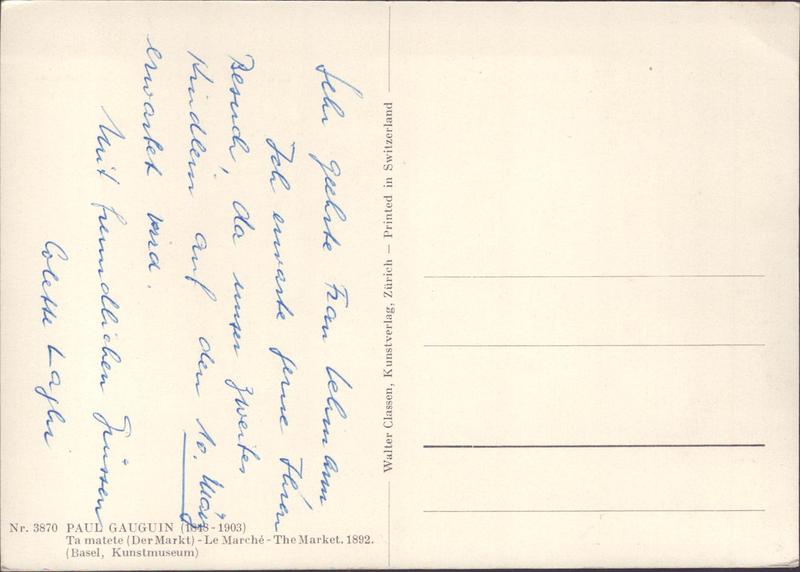 Sehr geehrte Frau Lehmann
Ich erwarte gerne Ihren
Besuch, da unser zweites
Kindlein auf den 10. März
erwartet wird.
Mit freundlichen Grüssen
Colette
Walter Classen, Kunstverlag, Zürich — Printed in Switzerland
Nr. 3870 PAUL GAUGUIN (1848-1903)
Ta matete (Der Markt) - Le Marché - The Market. 1892.
(Basel, Kunstmuseum)